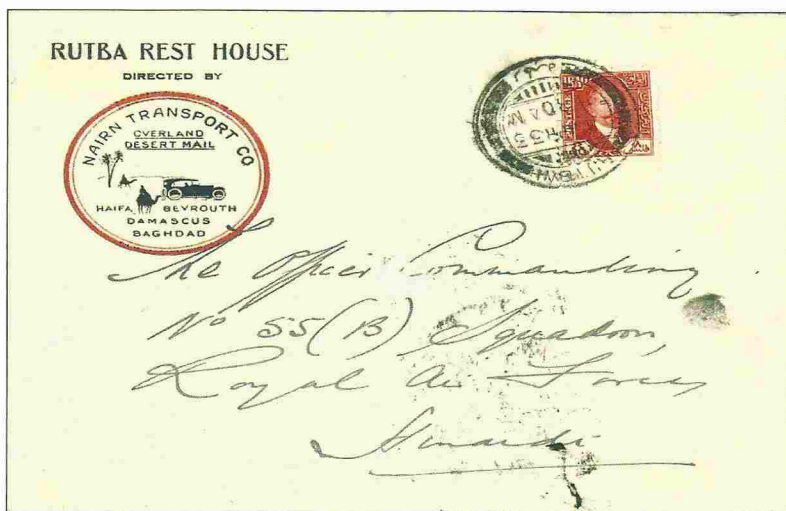 RUTBA REST HOUSE
DIRECTED BY
NAIRN TRANSPORT CO
OVERLAND
DESERT MAIL
HAIFA BEYROUTH
DAMASCUS
BAGHDAD
POSTAGE
The Officer Commanding
No 55 (B) Squadron,
Royal Air Force,
Hinaidi